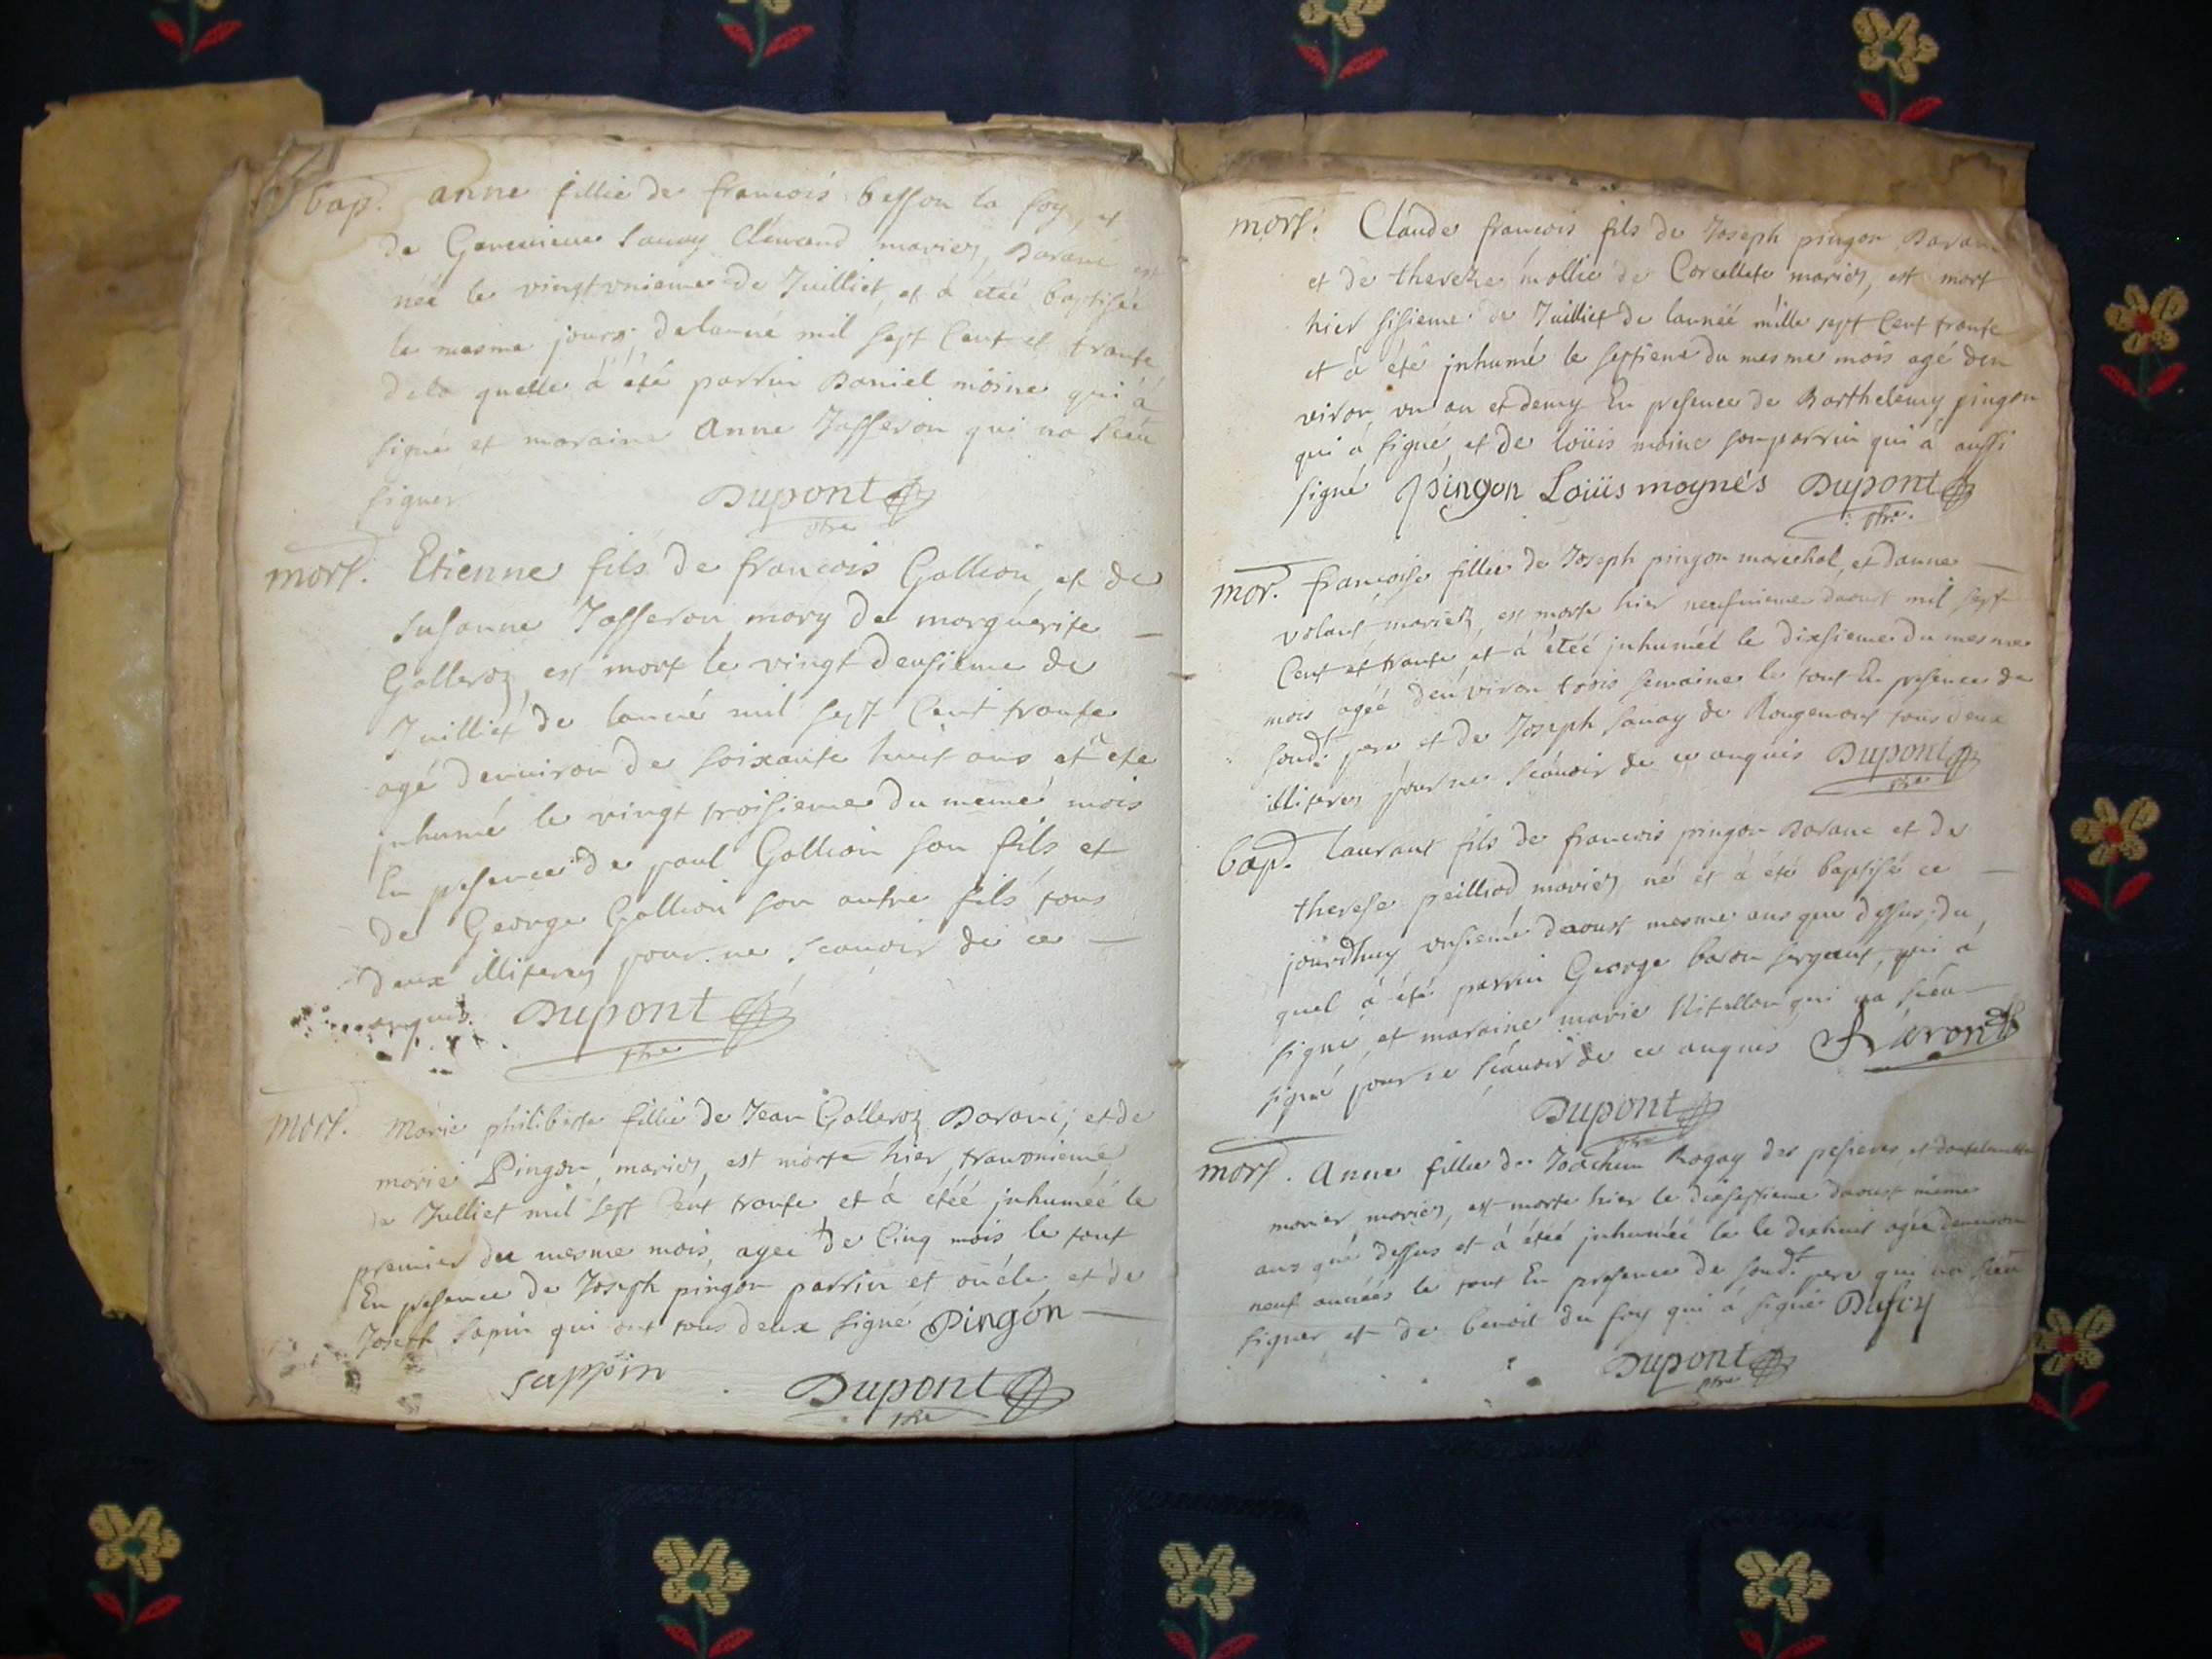 bap. anne fillie de francois besson la foy, et
de Genevieve Savay Clémand mariez, Daranc est
née le vingtvnieme de Juilliet, et à étéé baptisée
le mesme jours, delanné mil sept Cent et trante
dela quelle à été parrin Daniel moine qui à
signé et maraine Anne Jasseron qui na sceu
signer Dupont ptre
mort. Etienne fils de francois Gallion, et de
Susanne Jasseron mary de marguerite
Galleroz, est mort le vingt deusieme de
Juilliet de lanné mil sept Cent trante
agé denviron de soixante huit ans et à ete
jnhumé le vingt troisieme du memé mois
En presence de paul Gallion son fils et
de George Gallion son autre fils tous
deux illiterez pour ne scauoir de ce
anquis. Dupont ptre
mort. Marie philiberte fillie de Jean Galleroz Daranc; et de
marie Pingon, mariez, est morte hier, tranvnieme
de Julliet mil sept Cent trante et à étéé jnhuméé le
premier du mesme mois, agee de Cinq mois le tout
En presence de Joseph pingon parrin et oncle et de
Joseph Sapin qui ont tous deux signé Pingón
sappoin Dupont ptre
mort. Claude francois fils de Joseph pingon Daranc
et de thereze mollie de Corcellete mariez, est mort
hier sisieme de Juilliet de lannéé mille sept Cent trante
et à été jnhumé le septieme du mesme mois agé den
viron vn an et demy En presence de Barthelemy pingon
qui à signé, et de loüis moine son parrin qui à aussi
signé Pingon Loüis moynés Dupont ptre.
mor. francoise fillie de Joseph pingon marechal, et danne
volant mariez, est morte hier neufvieme daoust mil sept
Cent et trante, et à étéé jnhuméé le dixsieme du mesme
mois agéé denviron trois semaines le tout En presence de
soud.t pere et de Joseph Savay de Rougemont tous deux
illiterez pour ne scauoir de ce anquis Dupont ptre
bap. laurant fils de francois pingon Daranc et de
therese peilliod mariez né et à été baptisé ce
jourdhuy vnsieme daoust mesme ans que dessus, du
quel à été parrin George baron sergant, qui à
signé, et maraine marie Nitallon qui na sceu
signé pour ne scauoir de ce anquis Baron
Dupont ptre
mort. Anne fillie de Joachim Rogay des pesieres, et
monier mariez, est morte hier le dixseptieme daoust meme
ans que dessus et à étéé jnhuméé le le dixhuit agéé denviron
neuf annéés le tout En presence de soud.t pere qui na sceu
signer et de benoit du foy qui à signé Dufoy
Dupont ptre